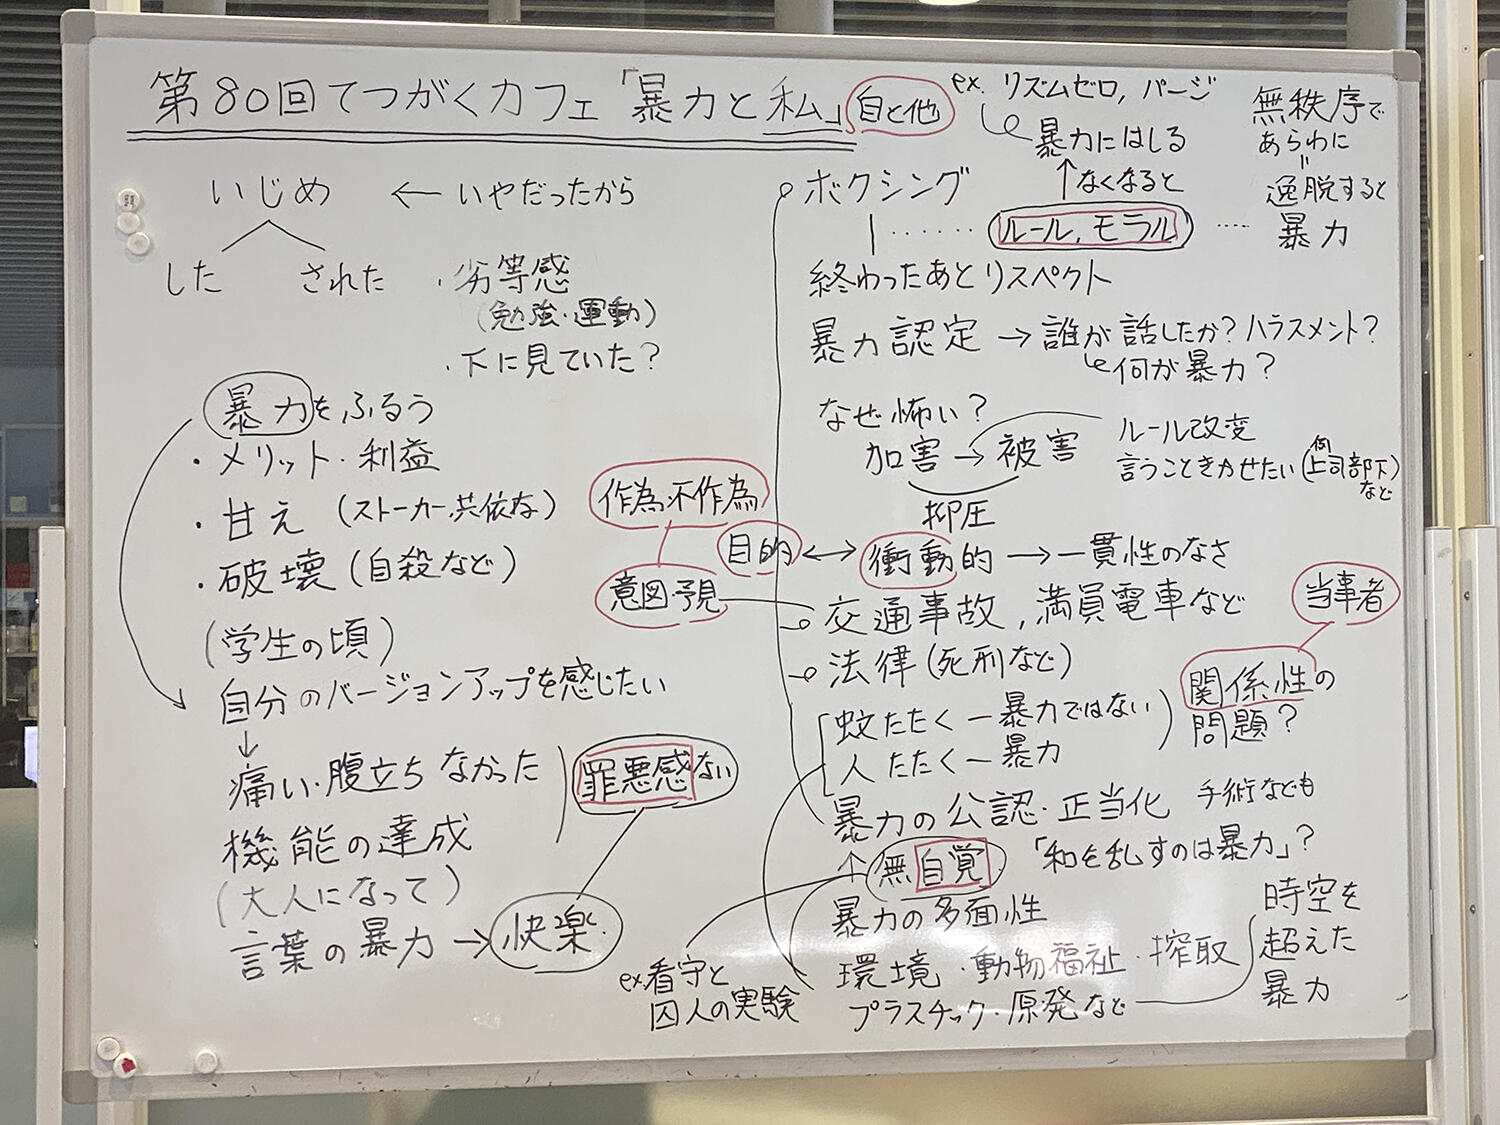 第80回てつがくカフェ「暴力と私」
自と他
ex. リズムゼロ, パージ
暴力にはしる
↑なくなると
無秩序で
あらわに
〃
逸脱すると
暴力
いじめ ← いやだったから
した された
・劣等感
(勉強・運動)
・下に見ていた?
暴力をふるう
・メリット・利益
・甘え (ストーカー,共依な)
・破壊 (自殺など)
(学生の頃)
自分のバージョンアップを感じたい
↓
痛い・腹立ちなかった
罪悪感ない
機能の達成
(大人になって)
言葉の暴力 → 快楽
ボクシング
ルール,モラル
終わったあとリスペクト
暴力認定 → 誰が話したか? ハラスメント?
何が暴力?
なぜ怖い?
加害 → 被害
抑圧
ルール改変
言うこときかせたい (例 上司部下)
など
作為・不作為
目的 ↔ 衝動的 → 一貫性のなさ
意図・予見
交通事故, 満員電車など
法律 (死刑など)
当事者
関係性の
問題?
蚊たたく ー 暴力ではない
人たたく ー 暴力
暴力の公認・正当化 手術なども
↑
無自覚 「和を乱すのは暴力」?
暴力の多面性
環境・動物福祉・搾取
プラスチック・原発など
時空を
超えた
暴力
ex.看守と
囚人の実験